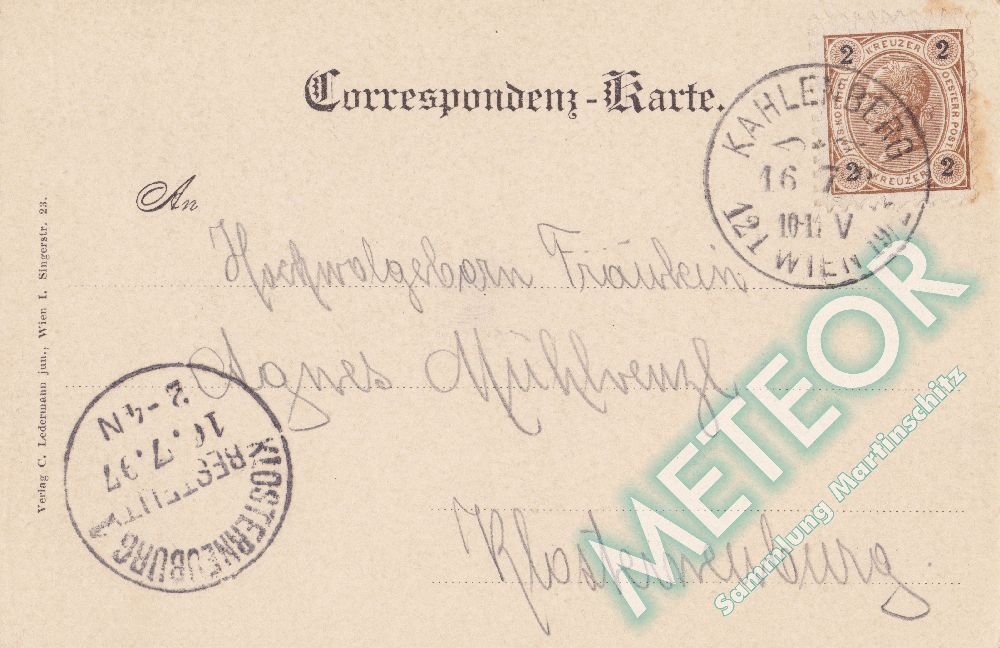 Correspondenz-Karte.
2 KREUZER 2
OESTERR. POST
2 KREUZER 2
KAHLENBERG
16 7
10-11 V
121 WIEN
An
Hochwolgeborn Fräulein
Agnes Mühlvenzl
Klosterneuburg
Verlag C. Ledermann jun., Wien I. Singerstr. 23.
KLOSTERNEUBURG 1
BESTELLT
7.97
2-4 N
METEOR
Sammlung Martinschitz